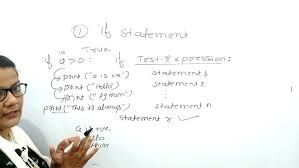 ① If Statement
True
10
if a>0: if Test-Expression:
print("a is +ve") statement 1
print("Hello") statement 2
print("Python")
print("This is always") statement n
statement x
a is +ve